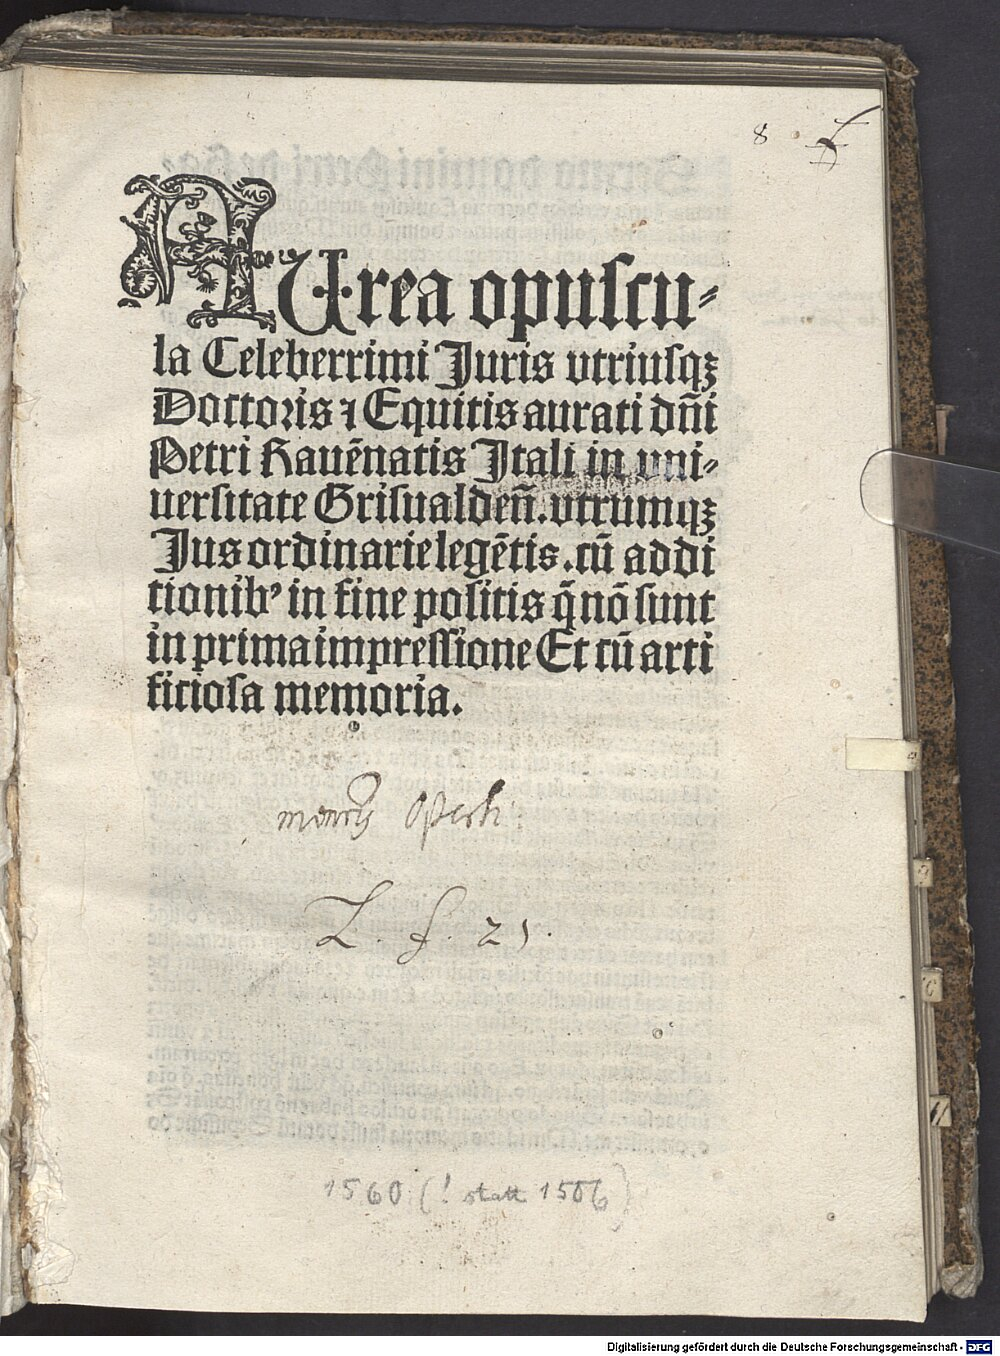 8
AUrea opuscu⸗
la Celeberrimi Juris vtriusqꝫ
Doctoris ⁊ Equitis aurati dñi
Petri Rauẽnatis Jtali in uni⸗
uersitate Grisualdeñ. vtrumqꝫ
Jus ordinarie legẽtis. cũ addi
tionibꝰ in fine positis q̃ nõ sunt
in prima impressione Et cũ arti
ficiosa memoria.
L f 21.
1560 (! statt 1506)
Digitalisierung gefördert durch die Deutsche Forschungsgemeinschaft - DFG